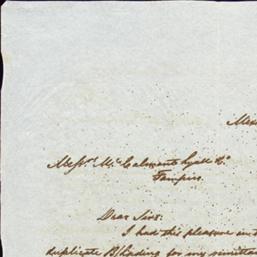 Mex
Messrs. McCalmont Lyall Co.
Tampico
Dear Sirs.
I had this pleasure
duplicate B/Lading for my remittan